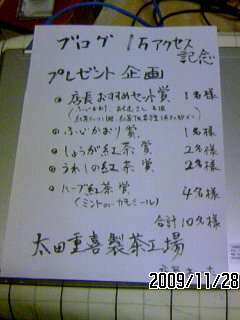 ブログ 1万アクセス
記念
プレゼント 企画
店長おすすめセット賞 1名様
ふじかおり賞 1名様
しょうが紅茶賞 2名様
うれしの紅茶賞 2名様
ハーブ紅茶賞 4名様
(ミントorカモミール)
合計10名様
太田重喜製茶工場
2009/11/28